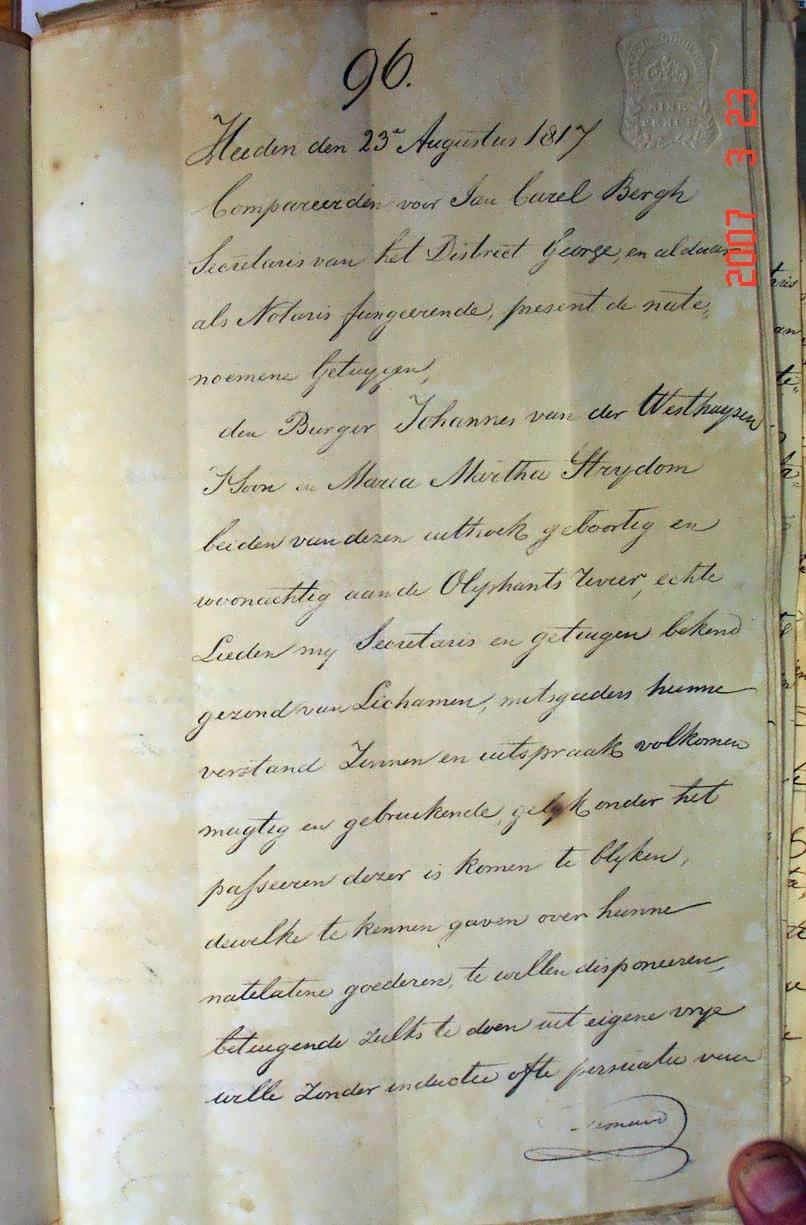 96.
Heeden den 23e Augustus 1817
Compareerden voor Jan Carel Bergh
Secretaris van het District George, en aldaar
als Notaris fungeerende, present de nate„
noemene Getuygen,
den Burger Johannes van der Westhuysen
JSoon en Maria Martha Strydom
beiden van dezen uithoek geboortig en
woonachtig aan de Olyphants rivier, echte
Lieden my Secretaris en getuigen bekend
gezond van Lichamen, mitsgaders hunne
verstand Zinnen en uitspraak volkomen
magtig en gebruikende, gelyk onder het
passeeren dezer is komen te blyken,
dewelke te kennen gaven over hunne
natelatene goederen, te willen disponeeren,
betuigende zulks te doen uit eigene vrye
wille Zonder inductie ofte persuatie van
iemand
NINE
PENCE
2007 3 23